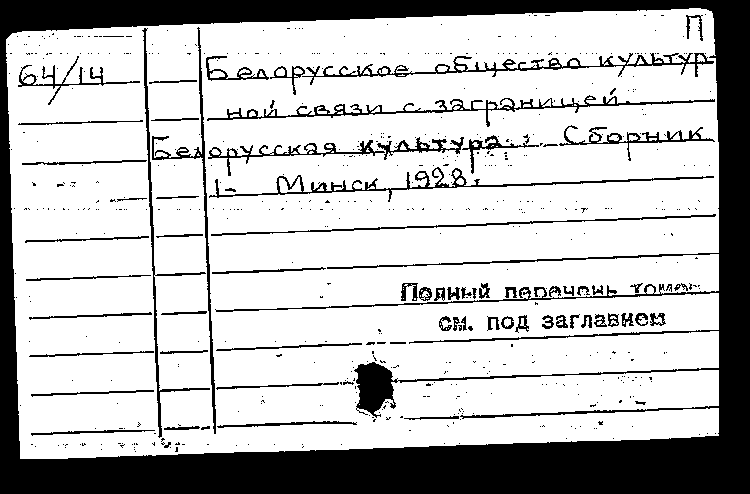 П
64/14 Белорусское общество культур-
ной связи с заграницей.
Белорусская культура : Сборник
1- Минск, 1928.
Полный перечень томов
см. под заглавием